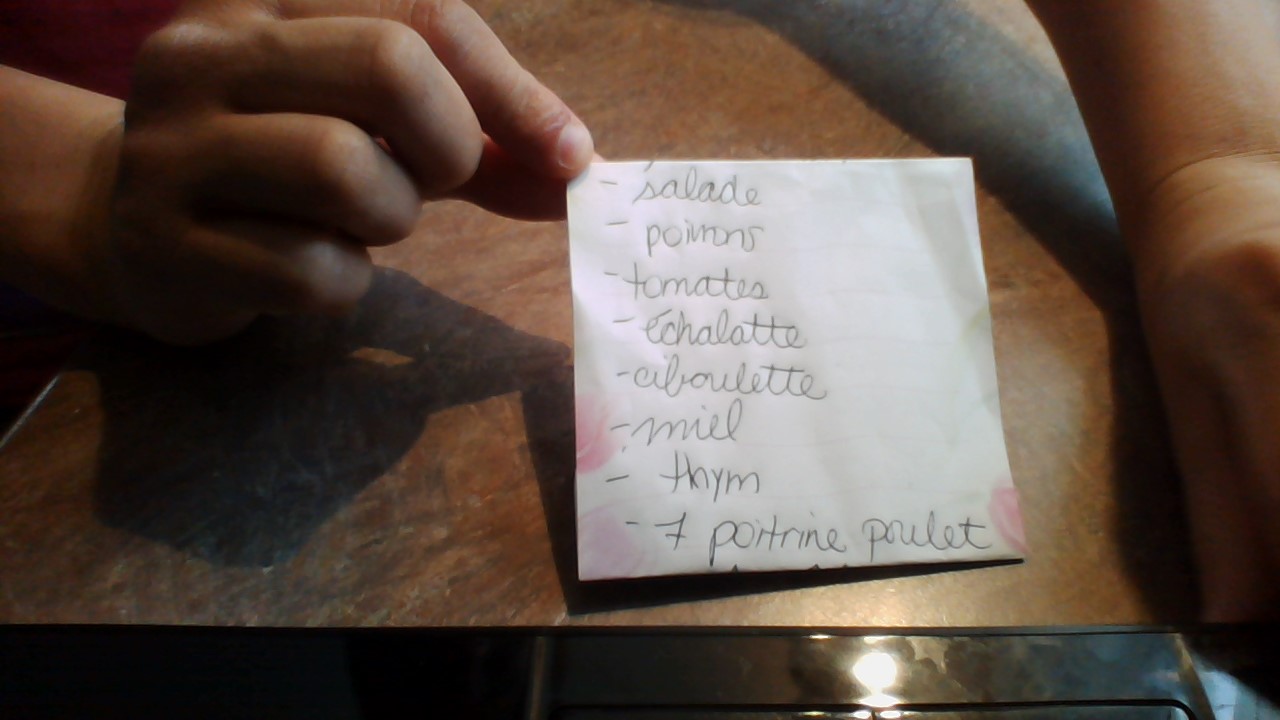 - salade
- poivrons
- tomates
- échalatte
- ciboulette
- miel
- thym
- 7 poitrine poulet